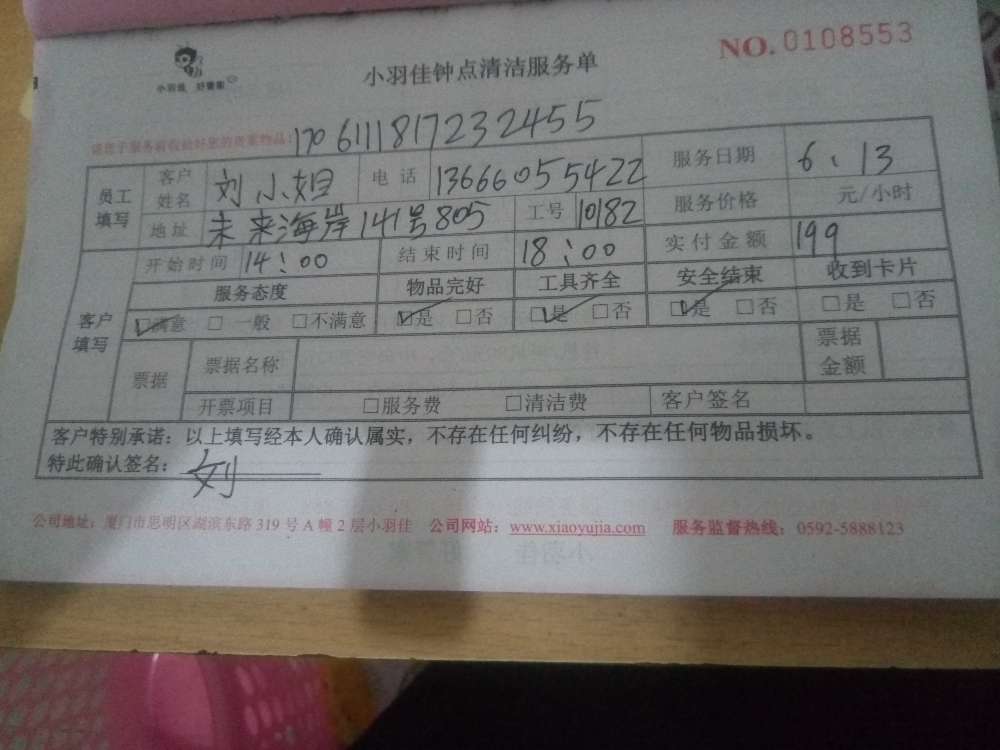 小羽佳 好管家
小羽佳钟点清洁服务单
NO.0108553
请您于服务前收拾好您的贵重物品: 170611181723 2455
员工填写 客户姓名 刘小姐 电话 13666055422 服务日期 6、13
地址 未来海岸141号805 工号 10182 服务价格 元/小时
客户填写 开始时间 14:00 结束时间 18:00 实付金额 199
服务态度 物品完好 工具齐全 安全结束 收到卡片
☑满意 □一般 □不满意 ☑是 □否 ☑是 □否 ☑是 □否 □是 □否
票据 票据名称 票据金额
开票项目 □服务费 □清洁费 客户签名
客户特别承诺：以上填写经本人确认属实，不存在任何纠纷，不存在任何物品损坏。
特此确认签名：刘
公司地址：厦门市思明区湖滨东路319号A幢2层小羽佳 公司网站：www.xiaoyujia.com 服务监督热线：0592-5888123